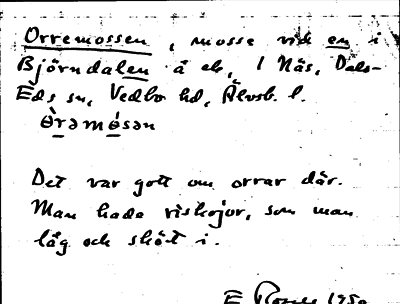 Orremossen, mosse vid en i
Björndalen å ek, 1 Näs, Dals-
Eds sn, Vedbo hd, Älvsb. l.
ɵ̀rəmɵ́sən
Det var gott om orrar där.
Man hade riskojor, som man
låg och sköt i.
E